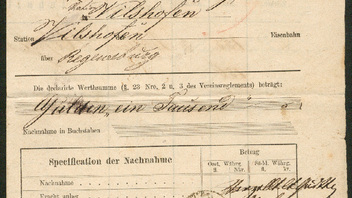 Vilshofen
Station Vilshofen Eisenbahn
über Regensburg
Die declarirte Werthsumme (§. 23 Nro. 2 u. 3 des Vereinsreglements) beträgt:
Gulden „ein Tausend“
Nachnahme in Buchstaben
Betrag
Specification der Nachnahme
Oest. Währg. Südd. Währg.
fl. Nkr. fl. kr.
Nachnahme
Fracht anher